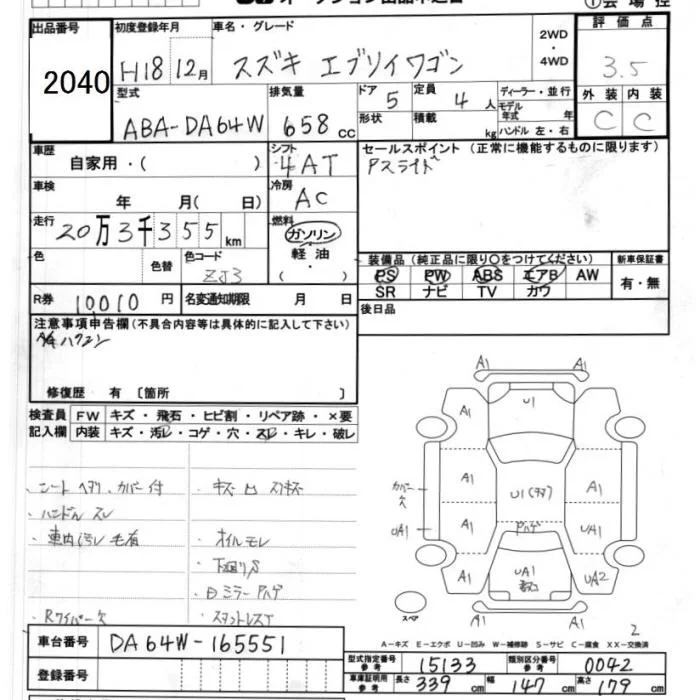 オークション出品申込書
①会場控
出品番号 2040
初度登録年月 H18 12月
車名・グレード スズキ エブリイワゴン
2WD・4WD
評価点 3.5
型式 ABA-DA64W
排気量 658cc
ドア 5 定員 4人
ディーラー・並行
モデル年式 年
外装 内装
C C
形状 積載 kg ハンドル 左・右
車歴 自家用・( )
シフト 4AT
セールスポイント(正常に機能するものに限ります)
Pスライド
車検 年 月( 日)
冷房 AC
走行 20万3千355km
燃料 ガソリン・軽油・( )
色 色替 色コード ZJ3
装備品(純正品に限り○をつけてください) 新車保証書
PS PW ABS エアB AW 有・無
SR ナビ TV カワ
R券 10010円 名変通知期限 月 日
後日品
注意事項申告欄(不具合内容等は具体的に記入して下さい)
修復歴 有 〔箇所 〕
検査員記入欄 FW キズ・飛石・ヒビ割・リペア跡・×要
内装 キズ・汚レ・コゲ・穴・スレ・キレ・破レ
・シートヘタリ、カバー付
・ハンドルスレ
・車内汚レ 毛有
・Rワイパー欠
・キズ凹 スリキズ
・オイルモレ
・下廻りS
・日ミラーPハゲ
A1 A1
A1 U1 A1
カバー欠 A1 U1(タヌ) A1
UA1 A1 Pハゲ UA1
A1 UA1 UA2
A1 A1
スペア
2
車台番号 DA64W-165551
登録番号
A-キズ E-エクボ U-凹み W-補修跡 S-サビ C-腐食 XX-交換済
型式指定番号 参考 15133 類別区分番号 参考 0042
車庫証明用 参考 長さ 339cm 幅 147cm 高さ 179cm